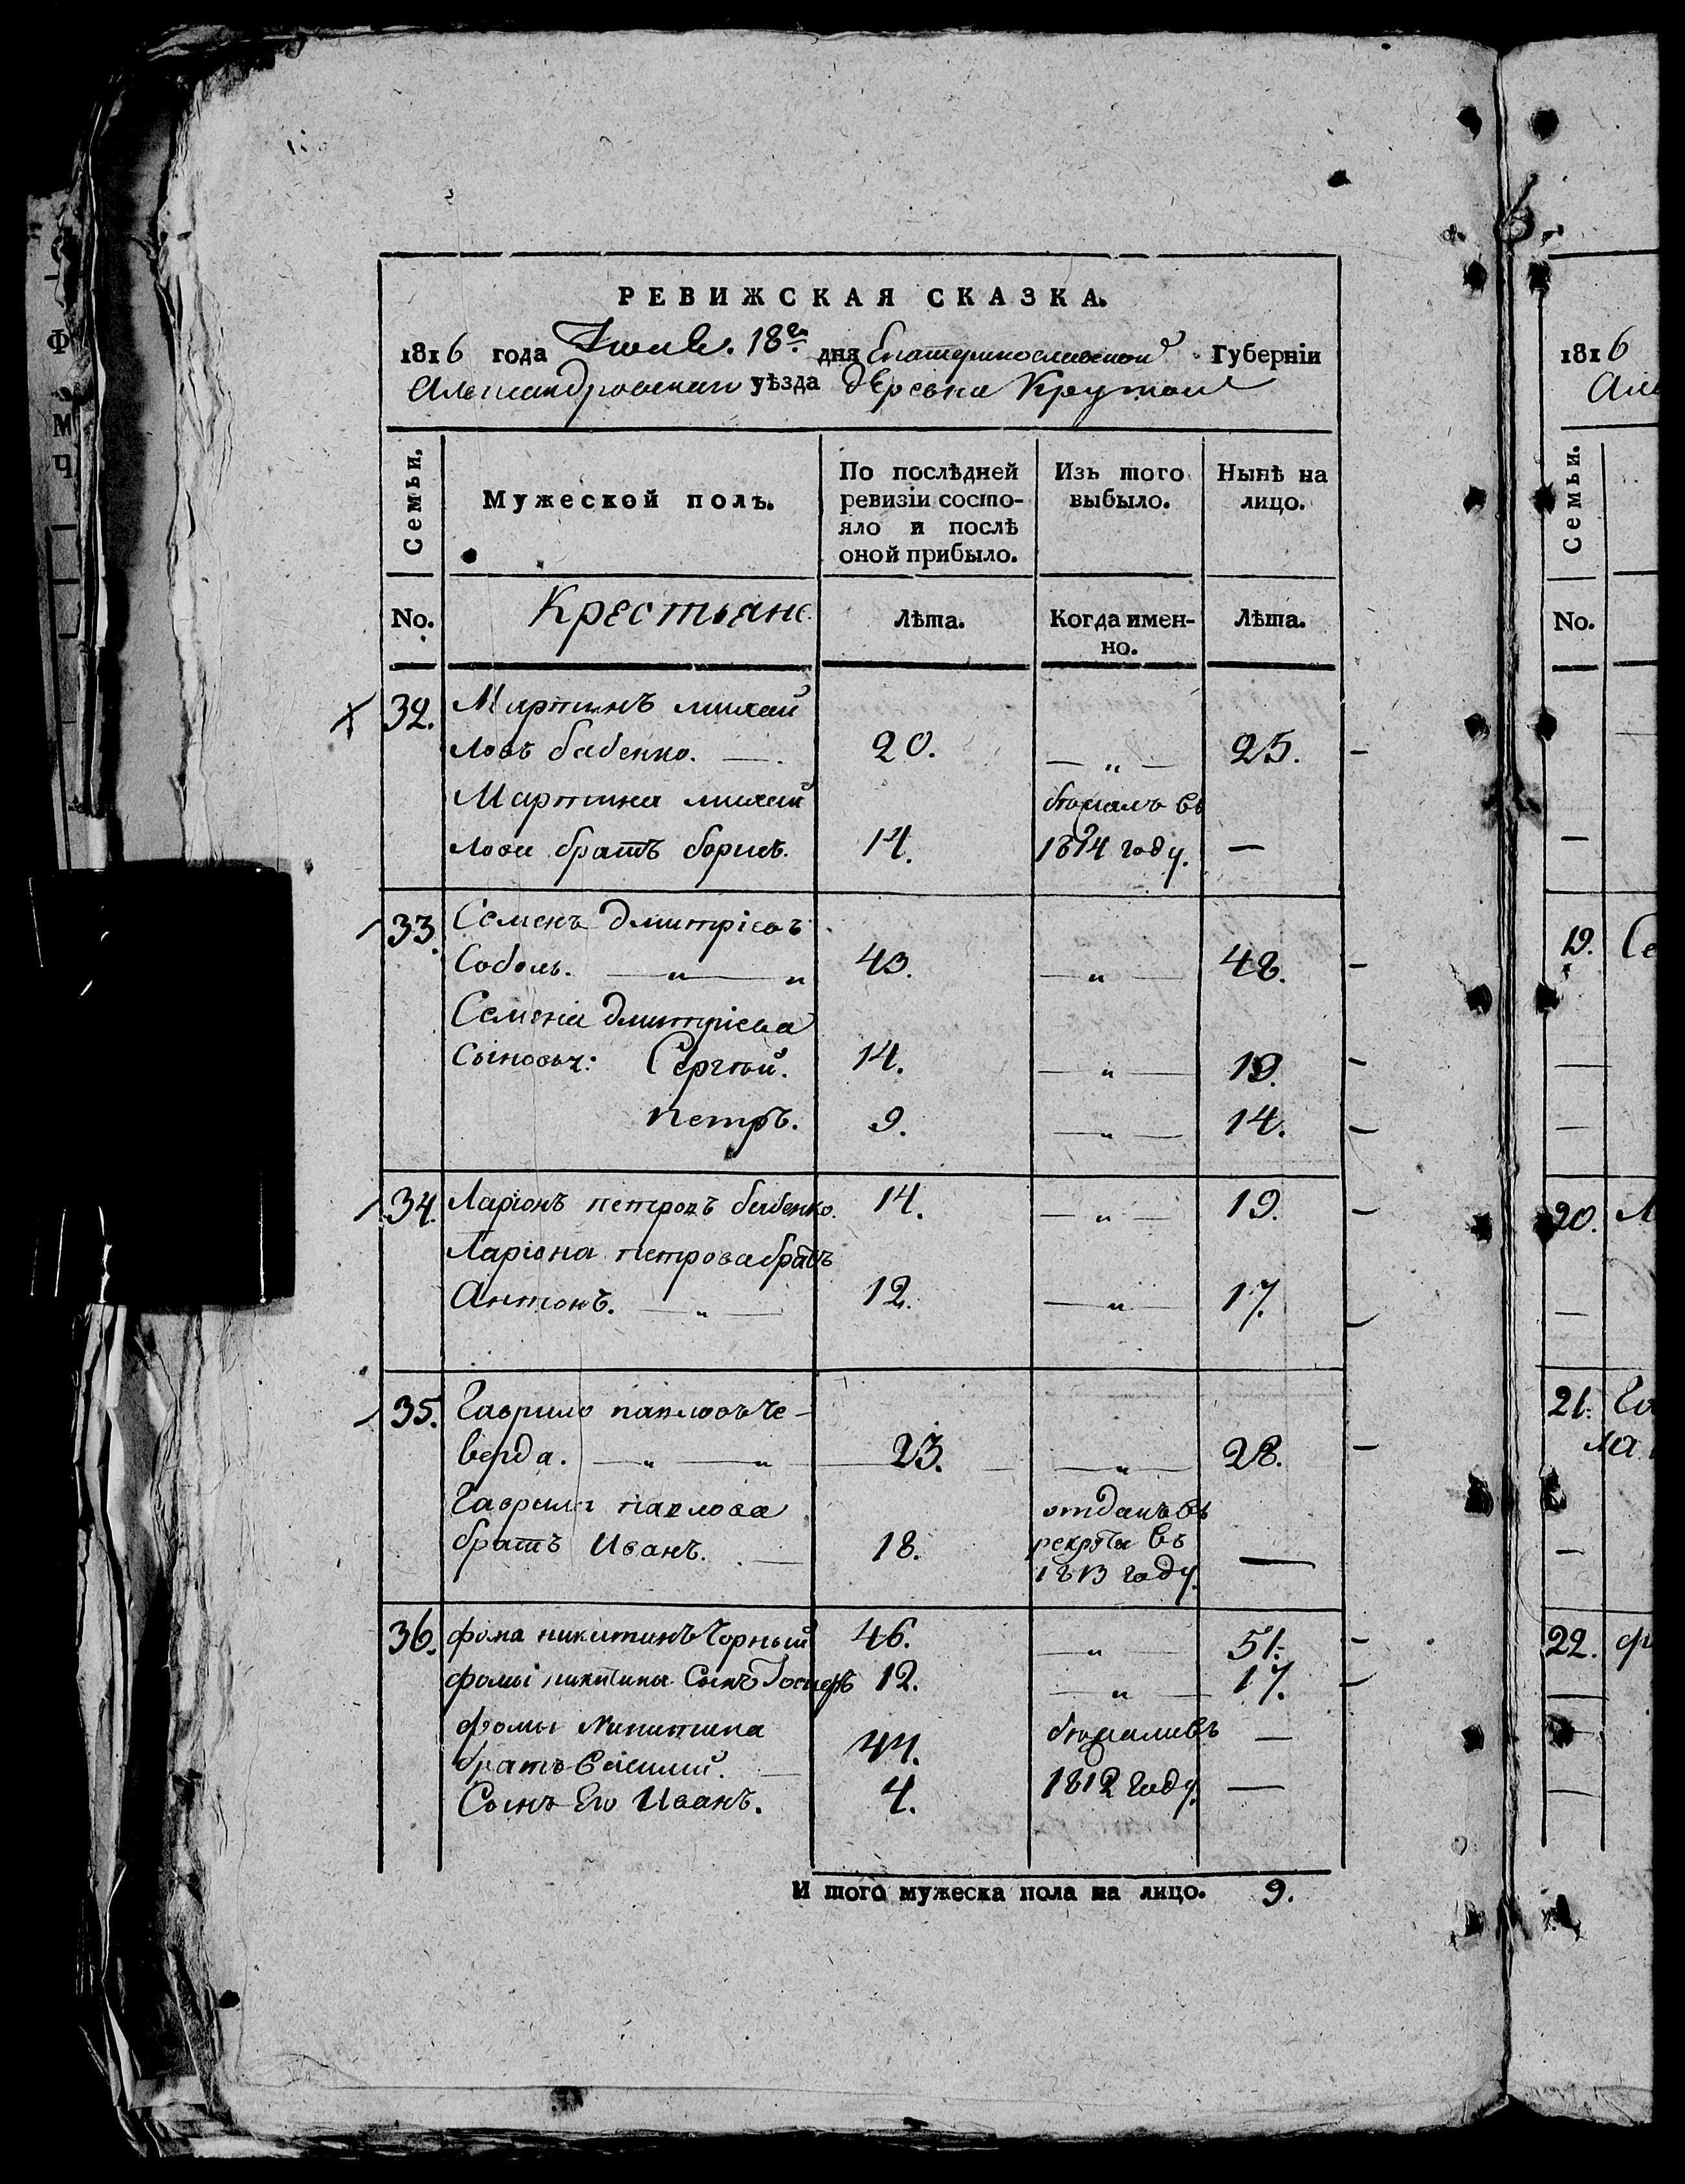 РЕВИЖСКАЯ СКАЗКА.
1816 года 18го дня Екатеринославской Губерніи
Александровскаго уѣзда деревни Крутой
Семьи.
Мужеской полъ.
По послѣдней
ревизіи состо-
яло и послѣ
оной прибыло.
Изъ того
выбыло.
Нынѣ на
лицо.
No.
Крестьяне
Лѣта.
Когда имен-
но.
Лѣта.
32. Мартинъ михай
ловъ бабенко. 20. — „ — 25. —
Мартина михай
лова братъ борисъ. 14. 1814 году. —
33. Семенъ дмитріевъ
Соболь. — „ — „ 43. — „ — 48. —
Семена дмитріева
Сыновья: Сергѣй. 14. — „ — 19. —
петръ. 9. — „ — 14. —
34. Ларіонъ петровъ бабенко. 14. — „ — 19. —
Ларіона петрова братъ
Антонъ. — „ — 12. — „ — 17. —
35. Гаврило павловъ Че-
верда. — „ — „ 23. — „ — 28. —
Гаврила павлова
братъ Иванъ. — 18. отданъ въ
рекруты въ
1813 году. —
36. фома никитинъ Чорный 46. — „ — 51. —
фомы никитина Сынъ Іосифъ 12. — „ — 17. —
фомы Никитина
братъ Василий. — 44. —
Сынъ Его Иванъ. 4. 1812 году. —
И того мужеска пола на лицо. 9.
1816
Але
Семьи.
No.
19. Се
20. Л
21. Га
ла
22. ф